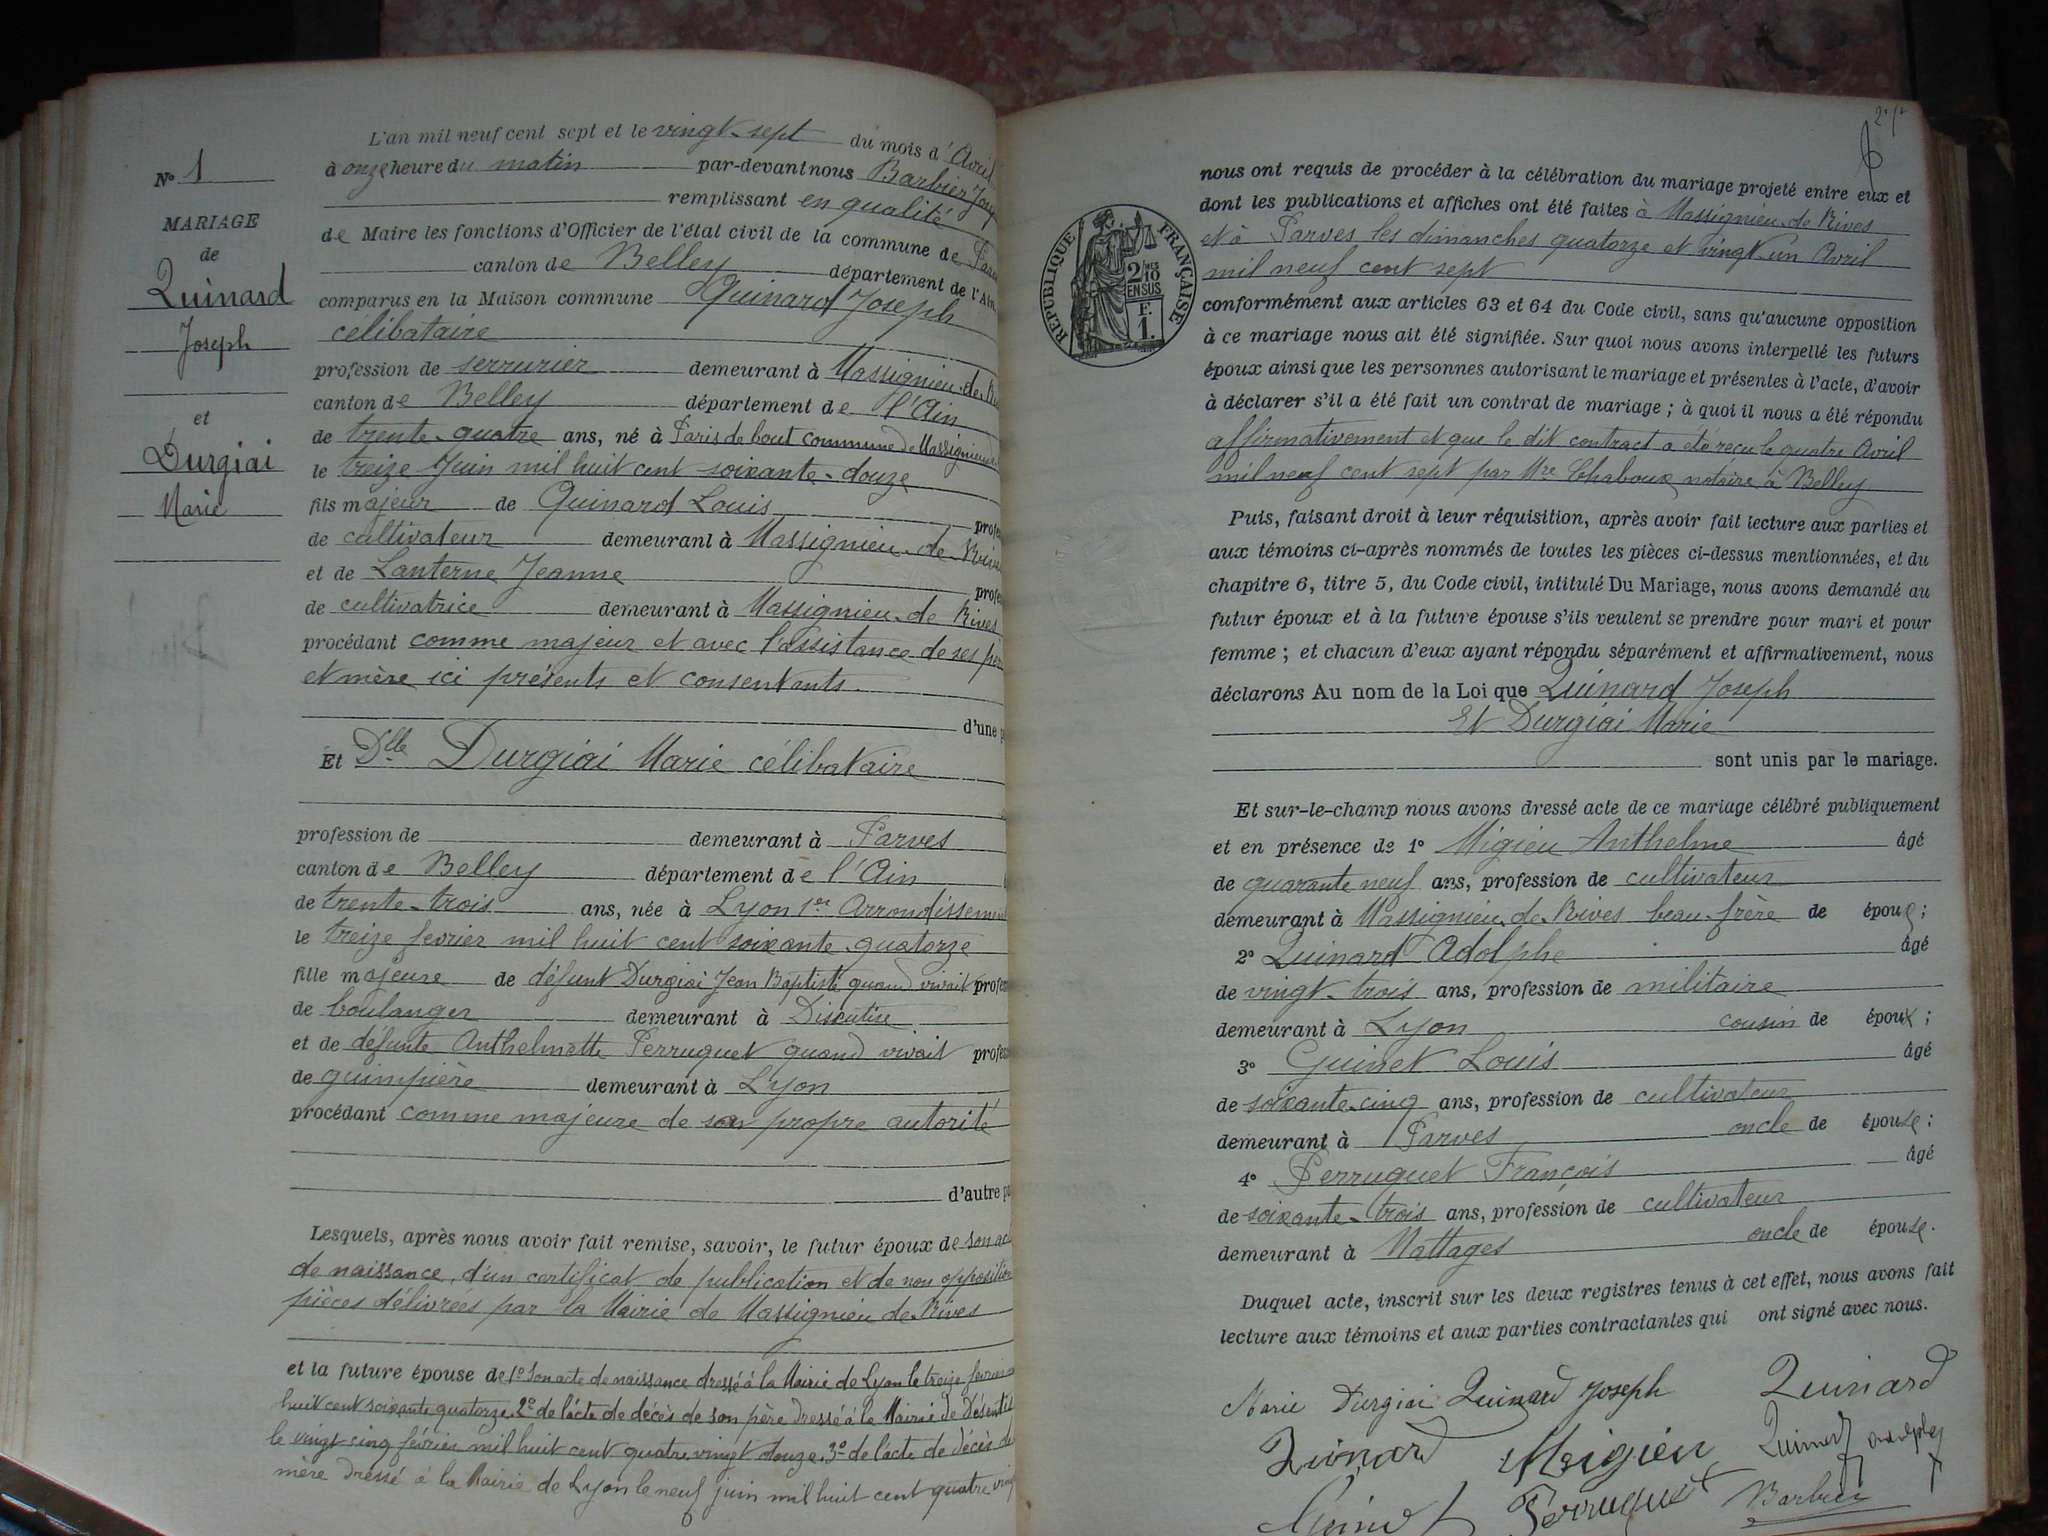 Nº 1
MARIAGE
de
Quinard
Joseph
et
Durgiai
Marie
L'an mil neuf cent sept et le vingt-sept du mois d'Avril
à onze heure du matin par-devant nous Barbier
remplissant en qualité
de Maire les fonctions d'Officier de l'état civil de la commune de
canton de Belley département de l'Ain
comparus en la Maison commune Quinard Joseph
célibataire
profession de serrurier demeurant à Massignieu-de-
canton de Belley département de l'Ain
de trente-quatre ans, né à Paris de bout commune de Massignieu
le treize Juin mil huit cent soixante-douze
fils majeur de Quinard Louis
de cultivateur demeurant à Massignieu-de-Rives
et de Lanterne Jeanne
de cultivatrice demeurant à Massignieu-de Rives
procédant comme majeur et avec l'assistance de ses
et mère ici présents et consentants.
d'une
Et Dlle Durgiai Marie célibataire
profession de demeurant à Parves
canton de Belley département de l'Ain
de trente-trois ans, née à Lyon 1er Arrondissement
le treize fevrier mil huit cent soixante-quatorze
fille majeure de défunt Durgiai Jean Baptiste quand vivait
de boulanger demeurant à
et de défunte Anthelmette Perruquet quand vivait
de guimpière demeurant à Lyon
procédant comme majeure de son propre autorité
d'autre
Lesquels, après nous avoir fait remise, savoir, le futur époux de son
de naissance, d'un certificat de publication et de non opposition
pièces délivrées par la Mairie de Massignieu de Rives
et la future épouse de 1º Son acte de naissance dressé à la Mairie de Lyon le treize fevrier
huit cent soixante quatorze. 2º de l'acte de décès de son père dressé à la Mairie de
le vingt cinq février mil huit cent quatre vingt douze. 3º de l'acte de décès de
mère dressé à la Mairie de Lyon le neuf juin mil huit cent quatre
RÉPUBLIQUE FRANÇAISE
2/10
EN SUS
F.
1.
nous ont requis de procéder à la célébration du mariage projeté entre eux et
dont les publications et affiches ont été faites à Massignieu-de Rives
et à Parves les dimanches quatorze et vingt-un Avril
mil neuf cent sept
conformément aux articles 63 et 64 du Code civil, sans qu'aucune opposition
à ce mariage nous ait été signifiée. Sur quoi nous avons interpellé les futurs
époux ainsi que les personnes autorisant le mariage et présentes à l'acte, d'avoir
à déclarer s'il a été fait un contrat de mariage ; à quoi il nous a été répondu
affirmativement et que le dit contract a été reçu le quatre Avril
mil neuf cent sept par Mre Chaboux notaire à Belley
Puis, faisant droit à leur réquisition, après avoir fait lecture aux parties et
aux témoins ci-après nommés de toutes les pièces ci-dessus mentionnées, et du
chapitre 6, titre 5, du Code civil, intitulé Du Mariage, nous avons demandé au
futur époux et à la future épouse s'ils veulent se prendre pour mari et pour
femme ; et chacun d'eux ayant répondu séparément et affirmativement, nous
déclarons Au nom de la Loi que Quinard Joseph
Et Durgiai Marie
sont unis par le mariage.
Et sur-le-champ nous avons dressé acte de ce mariage célébré publiquement
et en présence de 1º Migieu Anthelme âgé
de quarante neuf ans, profession de cultivateur
demeurant à Massignieu-de-Rives beau-frère de épouse ;
2º Quinard Adolphe âgé
de vingt-trois ans, profession de militaire
demeurant à Lyon cousin de époux ;
3º Guinet Louis âgé
de soixante-cinq ans, profession de cultivateur
demeurant à Parves oncle de épouse ;
4º Perruquet François âgé
de soixante-trois ans, profession de cultivateur
demeurant à Nattages oncle de épouse.
Duquel acte, inscrit sur les deux registres tenus à cet effet, nous avons fait
lecture aux témoins et aux parties contractantes qui ont signé avec nous.
Marie Durgiai Quinard Joseph Quinard
Meigieu
Guinet Perruquet Barbier